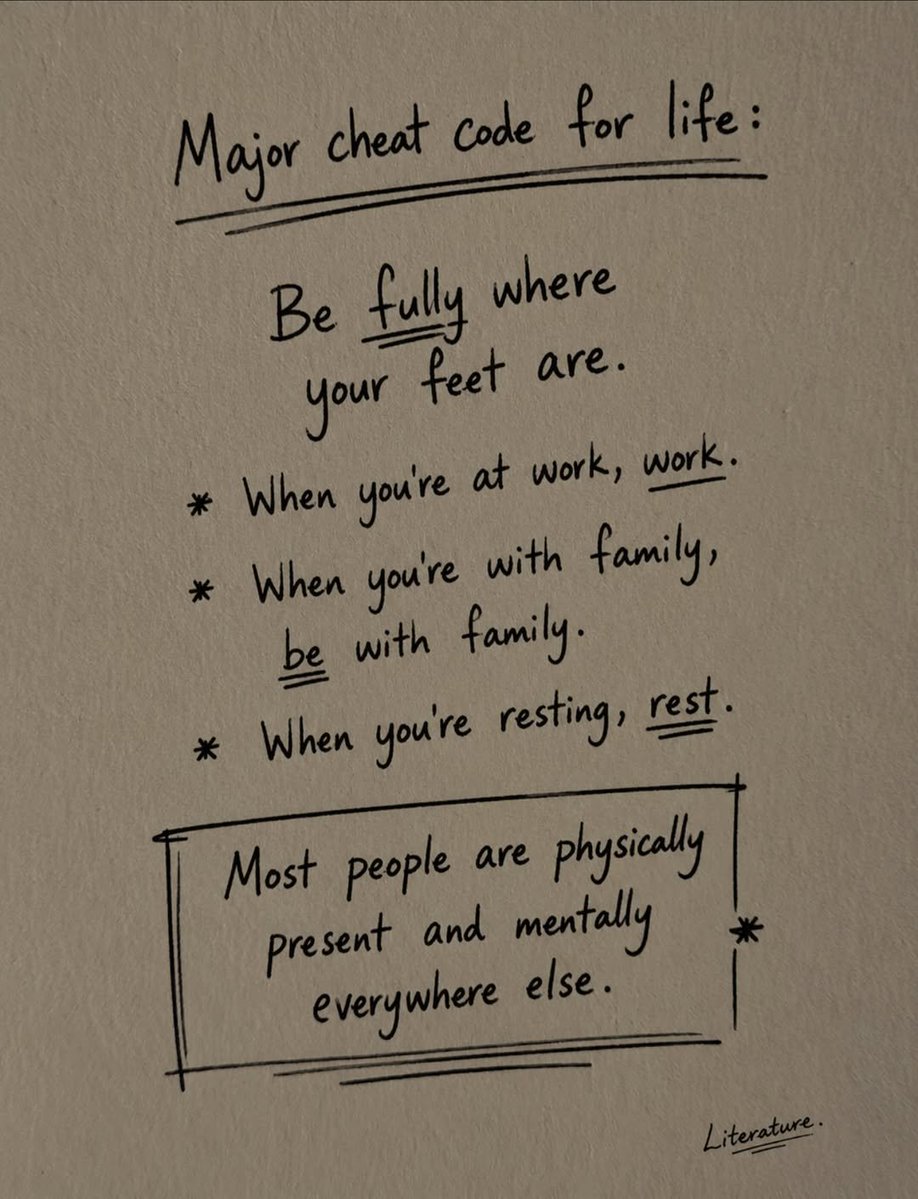 Major cheat code for life:
Be fully where
your feet are.
* When you're at work, work.
* When you're with family,
be with family.
* When you're resting, rest.
Most people are physically
present and mentally
everywhere else.
*
Literature.